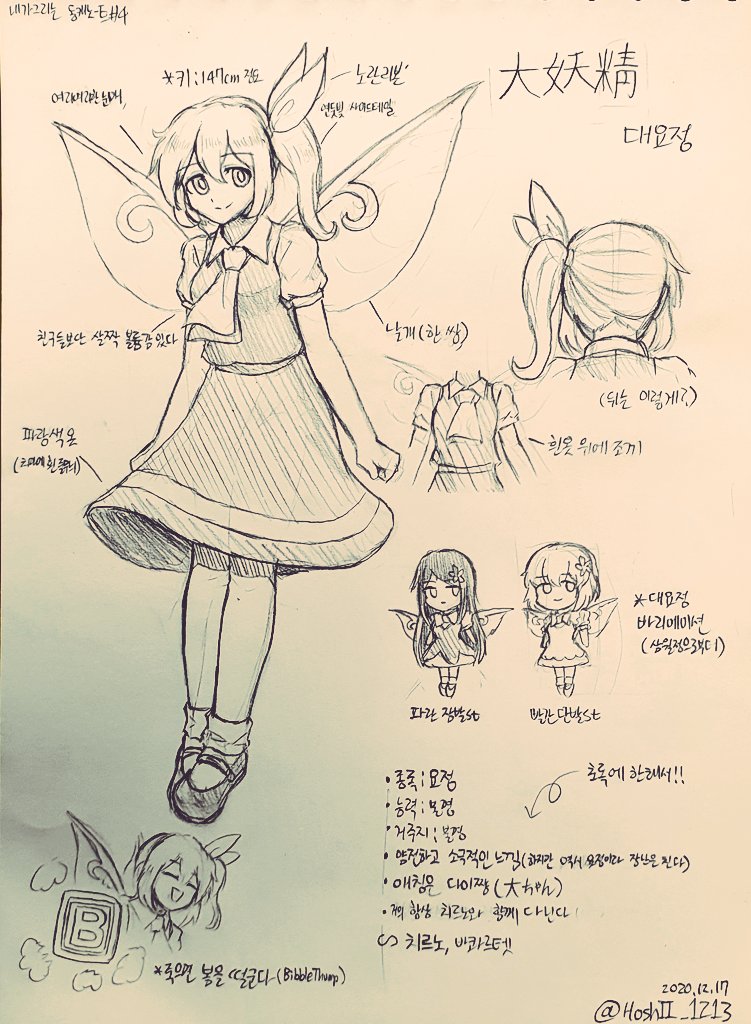 내가그리는 동게노트#4
*키:147cm 정도
노란리본
연둣빛 사이드테일
大妖精
대요정
친구들보단 살짝 볼륨감있다
날개(한 쌍)
(뒤는 이렇게?)
파랑색 옷
흰옷 위에 조끼
*대요정
바리에이션
파란 장발st
빨간단발st
초록에 한해서!!
•종족:요정
•능력:불명
•거주지:불명
•얌전하고 소극적인 느낌(하지만 역시 요정이라 장난은 친다)
•애칭은 다이쨩(大ちゃん)
•거의 항상 치르노와 함께 다닌다
치르노, 바카르텟
B
*죽으면 봄을 떨군다(BibleThump)
2020.12.17
@HoshII_1213